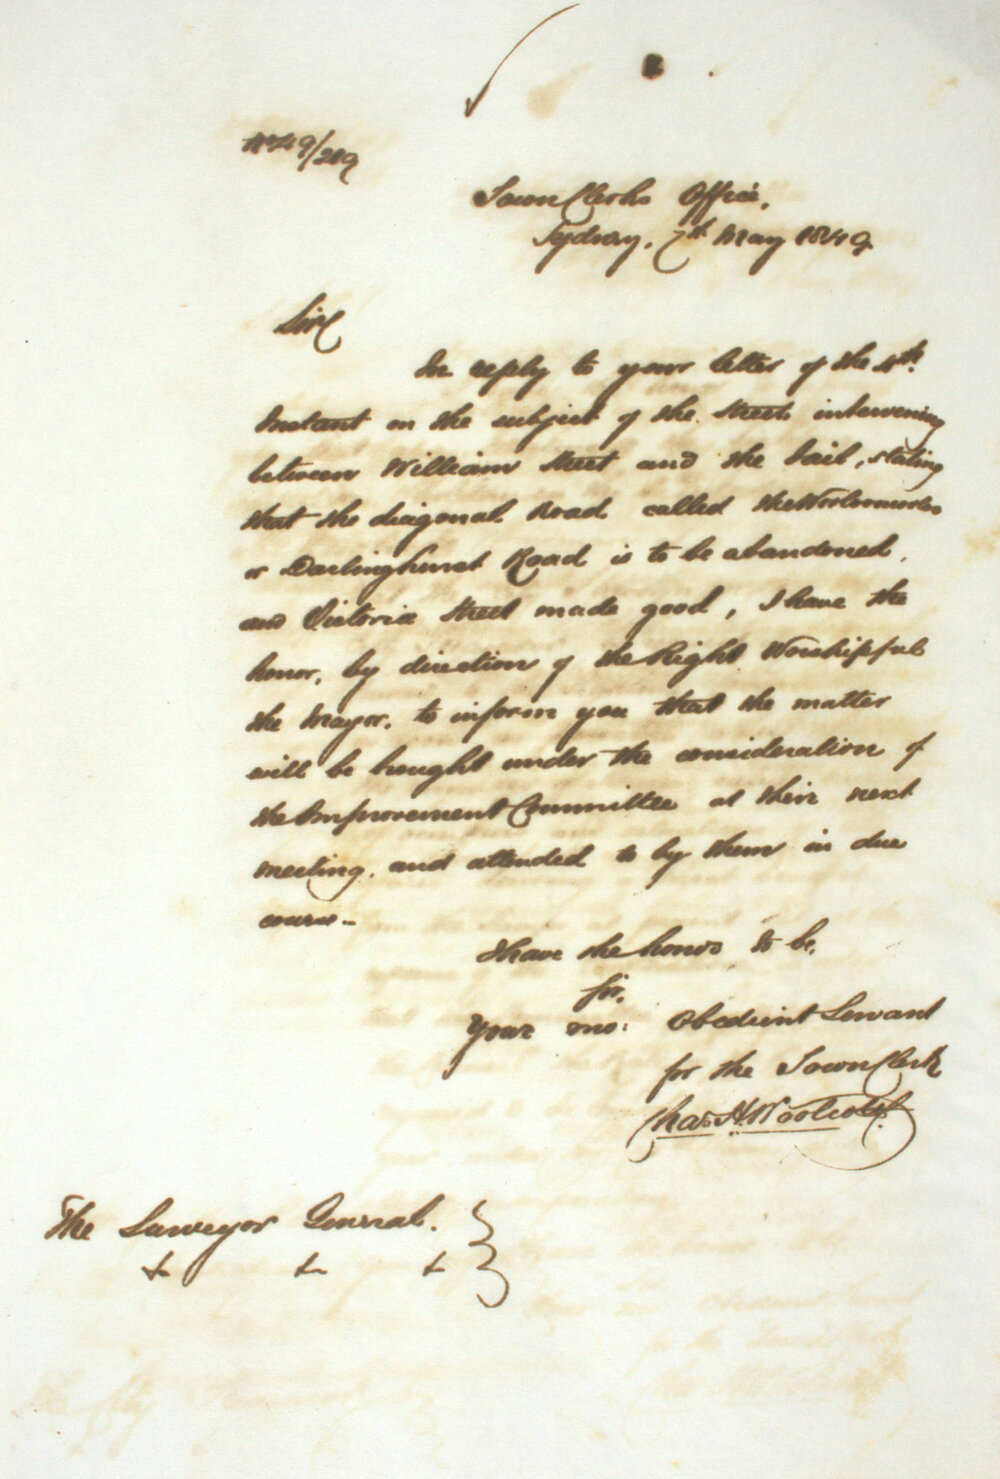 No 49/289
Town Clerks Office,
Sydney, 7th May 1849
Sir
In reply to your letter of the 4th
Instant on the subject of the Streets intervening
between William Street and the Gail, stating
that the diagonal Road called the Woolomooloo
or Darlinghurst Road is to be abandoned,
and Victoria Street made good, I have the
honor, by direction of the Right Worshipful
the Mayor, to inform you that the matter
will be brought under the consideration of
the Improvement Committee at their next
meeting, and attended to by them in due
course -
I have the honor to be,
Sir,
Your mo: Obedient Servant
for the Town Clerk
Chas H Woolcott
The Surveyor General.